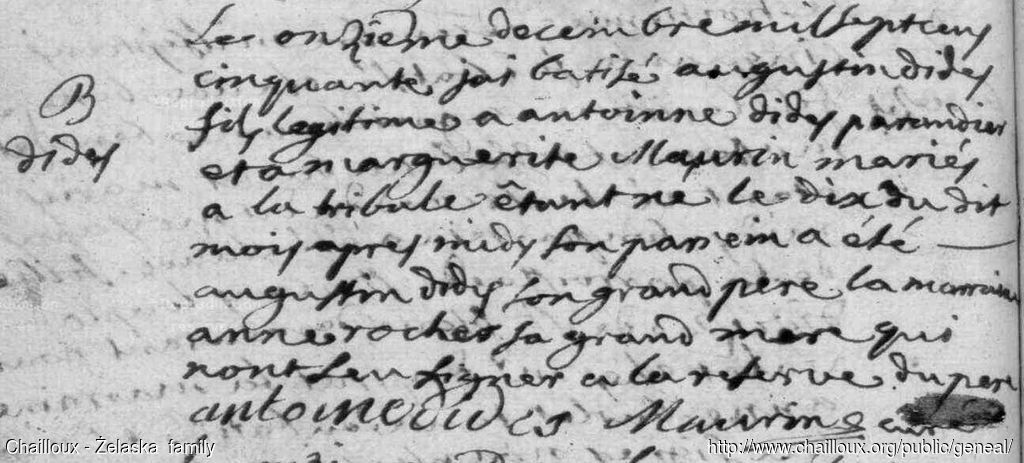 B
dides
Le onzieme decembre mil sept cens
cinquante jai batisé augustin dides
fils legitime a antoinne dides parandier
et a marguerite Maurin mariés
a la tribule êtant ne le dix du dit
mois apres midy son parrein a été
augustin dides son grand pere la marraine
anne roches sa grand mere qui
nont seu signer a la reserve du pere
antoine dides Maurin curé
Chailloux - Żelaska family
http://www.chailloux.org/public/geneal/